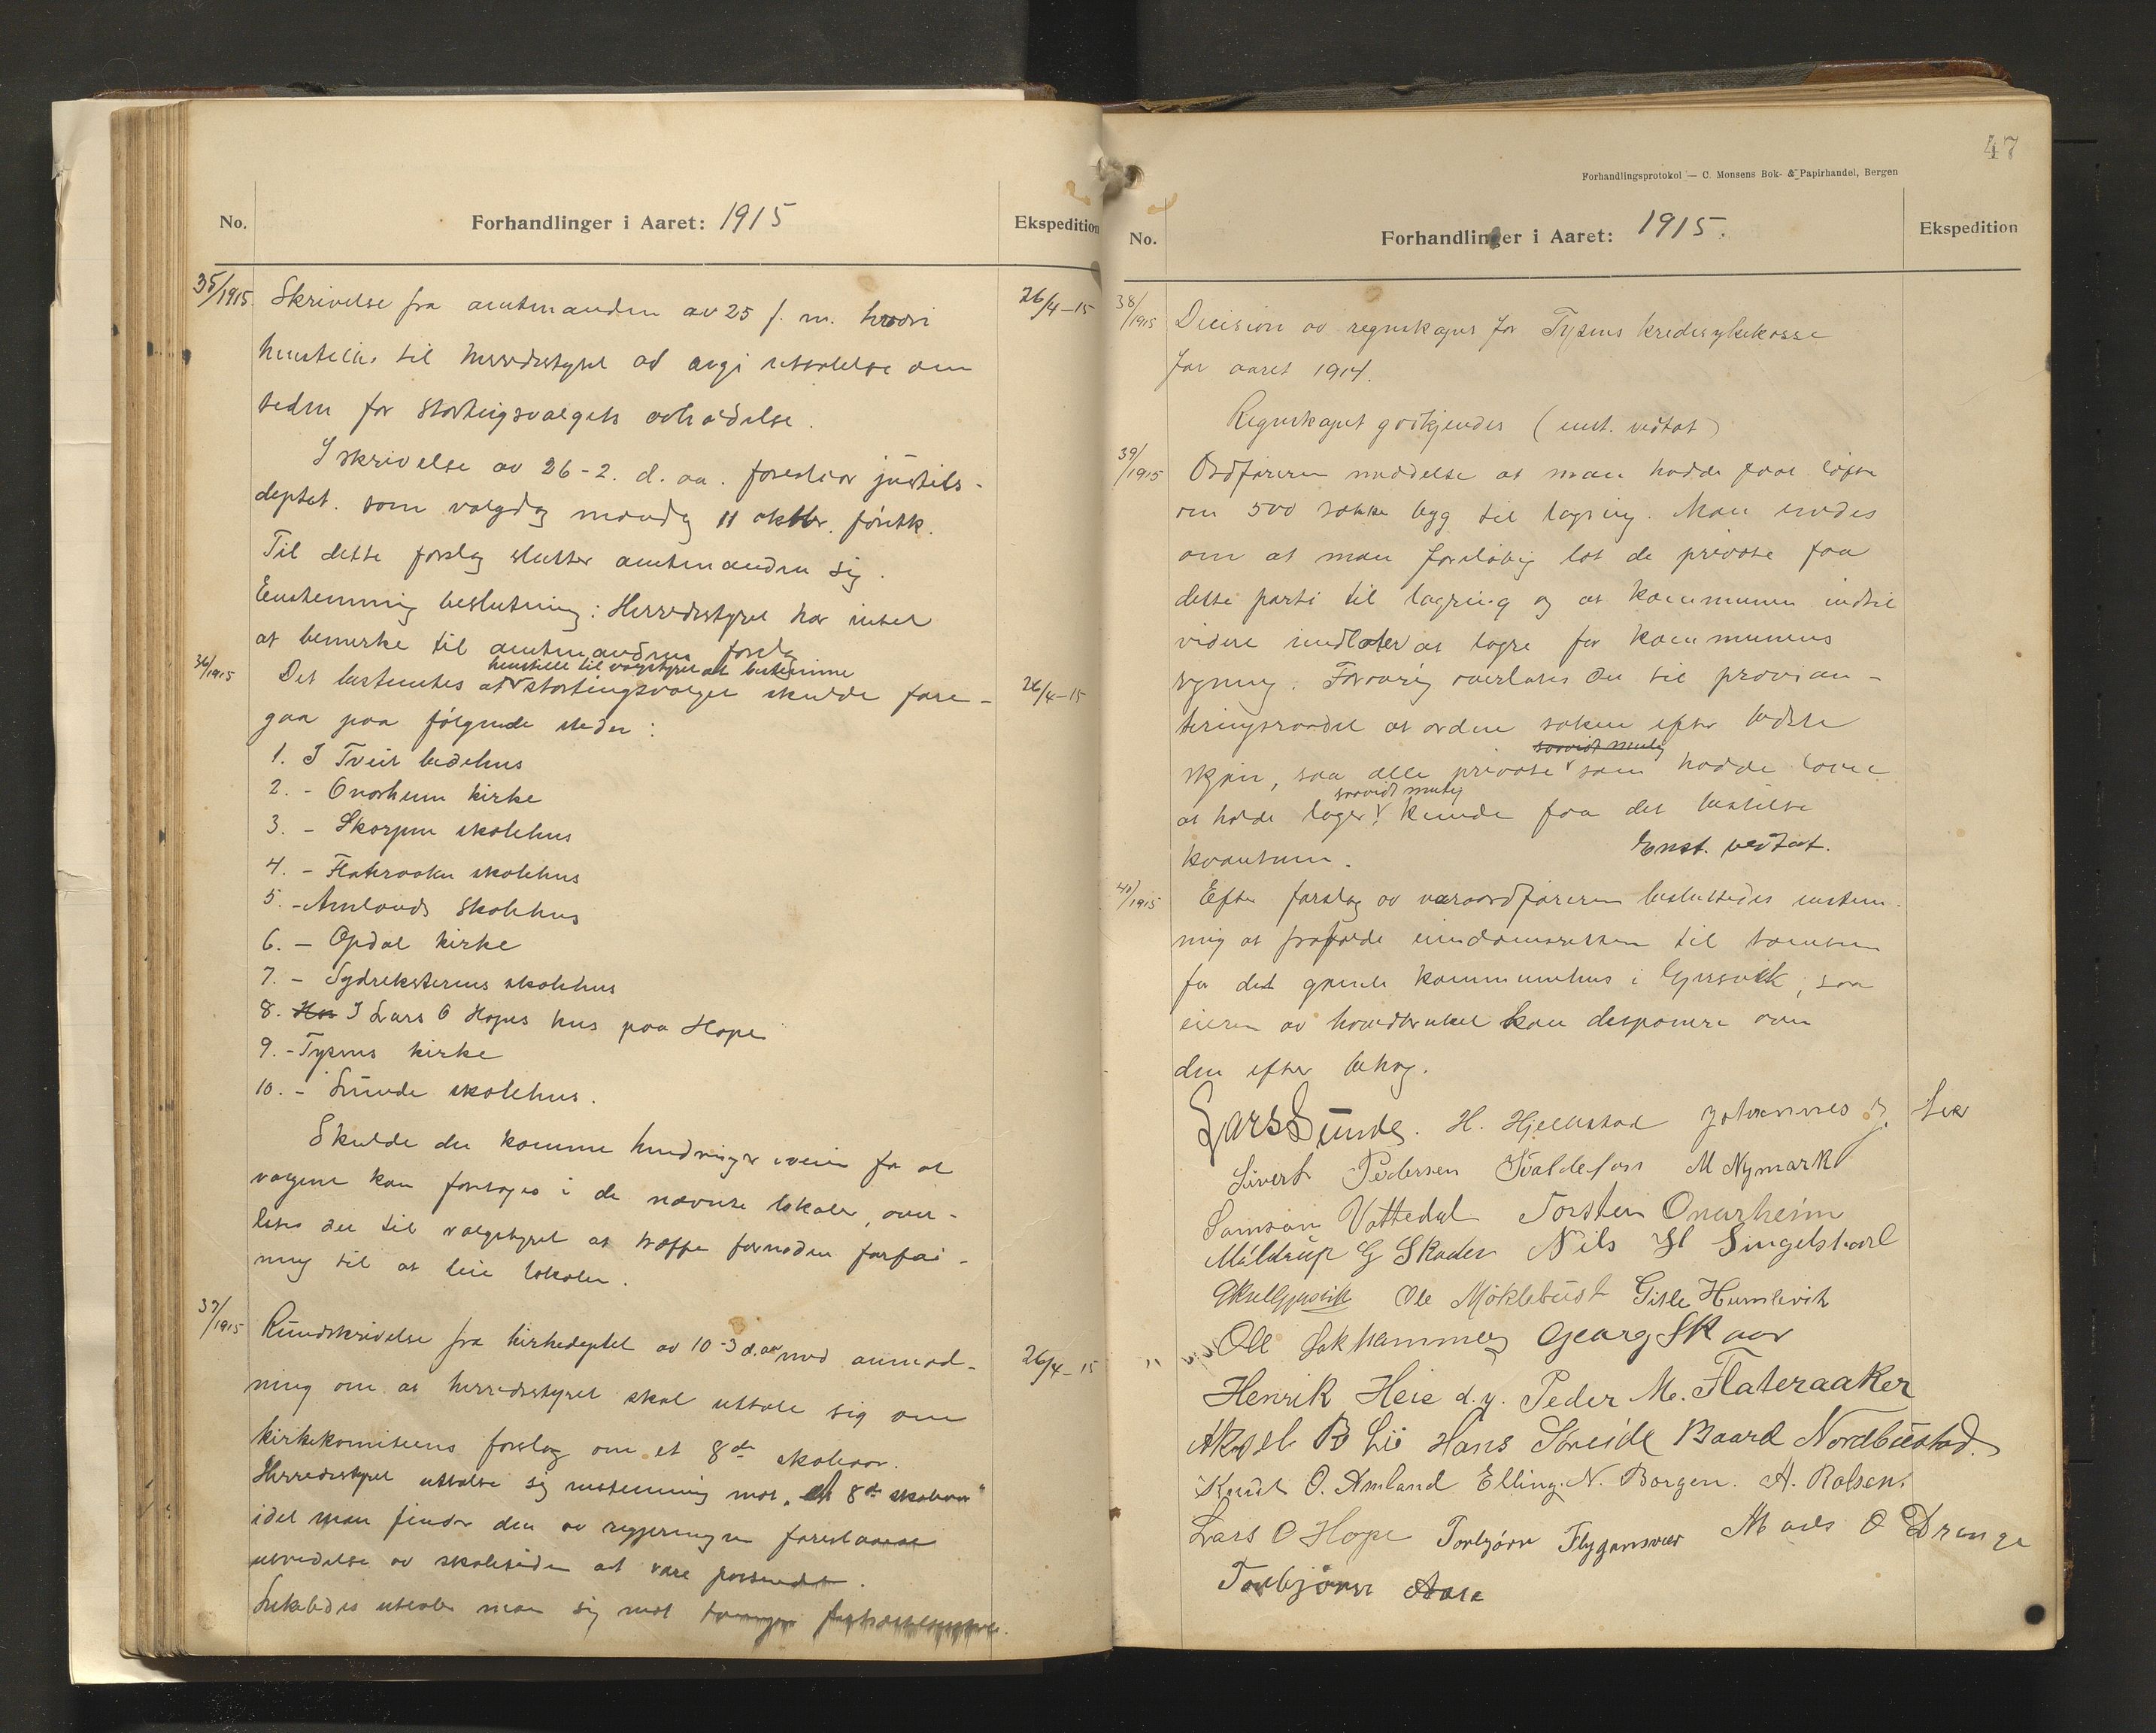 No.
Forhandlinger i Aaret: 1915
Ekspedition
35/1915
Skrivelse fra amtmanden av 25 f. m. hvori
26/4-15
henstilles til herredsstyret at avgi uttalelse om
tiden for stortingsvalgets avholdelse.
I skrivelse av 26-2. d. aa. foreslaar justits-
deptet. som valgdag mandag 11 oktbr. førstk.
Til dette forslag slutter amtmanden sig.
Enstemmig beslutning: Herredsstyret har intet
at bemerke til amtmandens forslag
36/1915
henstille til valgstyret at bestemme
Det bestemtes at stortingsvalget skulde fore-
26/4-15
gaa paa følgende steder:
1. I Tveit bedehus
2. - Onarheim kirke
3. - Skorpen skolehus
4. - Flateraaker skolehus
5. - Amlands skolehus
6. - Opdal kirke
7. - Sydreksterens skolehus
8. I Lars O Hopes hus paa Hope
9. - Tysnes kirke
10. - Lunde skolehus.
Skulde der komme hindringer iveien for at
valgene kan foretages i de nævnte lokaler, over-
lates det til valgstyret at træffe fornøden forføi-
ning til at leie lokaler.
37/1915
Rundskrivelse fra kirkedeptet av 10-3 d. aa med anmod-
26/4-15
ning om at herredsstyret skal uttale sig om
kirkekomiteens forslag om et 8de skoleaar.
Herredsstyret uttalte sig enstemmig mot "et 8de skoleaar"
idet man finder den av regjeringen foreslaaede
utvidelse av skoletiden at være
Likeledes uttaler man sig mot
47
Forhandlingsprotokol — C. Monsens Bok- & Papirhandel, Bergen
No.
Forhandlinger i Aaret: 1915.
Ekspedition
38/1915
Decision av regnskapet for Tysnes kredssykekasse
for aaret 1914.
Regnskapet godkjendes (enst. vedtat)
39/1915
Ordføreren meddelte at man hadde faat løfte
om 500 sække byg til lagring. Man enedes
om at man foreløbig lot de private faa
dette parti til lagring og at kommunen indtil
videre undlater at lagre for kommunens
regning. Forøvrig overlates det til provian-
teringsraadet at ordne saken efter bedste
saavidt mulig
skjøn, saa alle private som hadde lovet
saavidt mulig
at holde lager kunde faa det bestilte
kvantum.
Enst. vedtat.
40/1915
Efter forslag av varaordføreren besluttedes enstem-
mig at frafalde eiendomsretten til tomten
for det gamle kommunehus i Gjersvik, saa
eieren av hovedbruket kan disponere over
den efter behag.
Lars Lunde. H. Hjellestad Johannes J. Lie
Sivert Pedersen Svaldefoss M Nymark
Samson Vattedal Torsten Onarheim
Mildrup G Skaden Nils H Singelstad
Ole Møklebust Gisle Humlevik
Ole Lokhammer Georg Skaar
Henrik Heie d.y. Peder M. Flateraaker
Aksel B Lie Hans Søreide Baard Nordbustad.
Knut O. Amland Elling N. Borgen. A. Rolsen.
Lars O Hope Torbjørn Flygansvær Mads O Drange
Torbjørn Aase